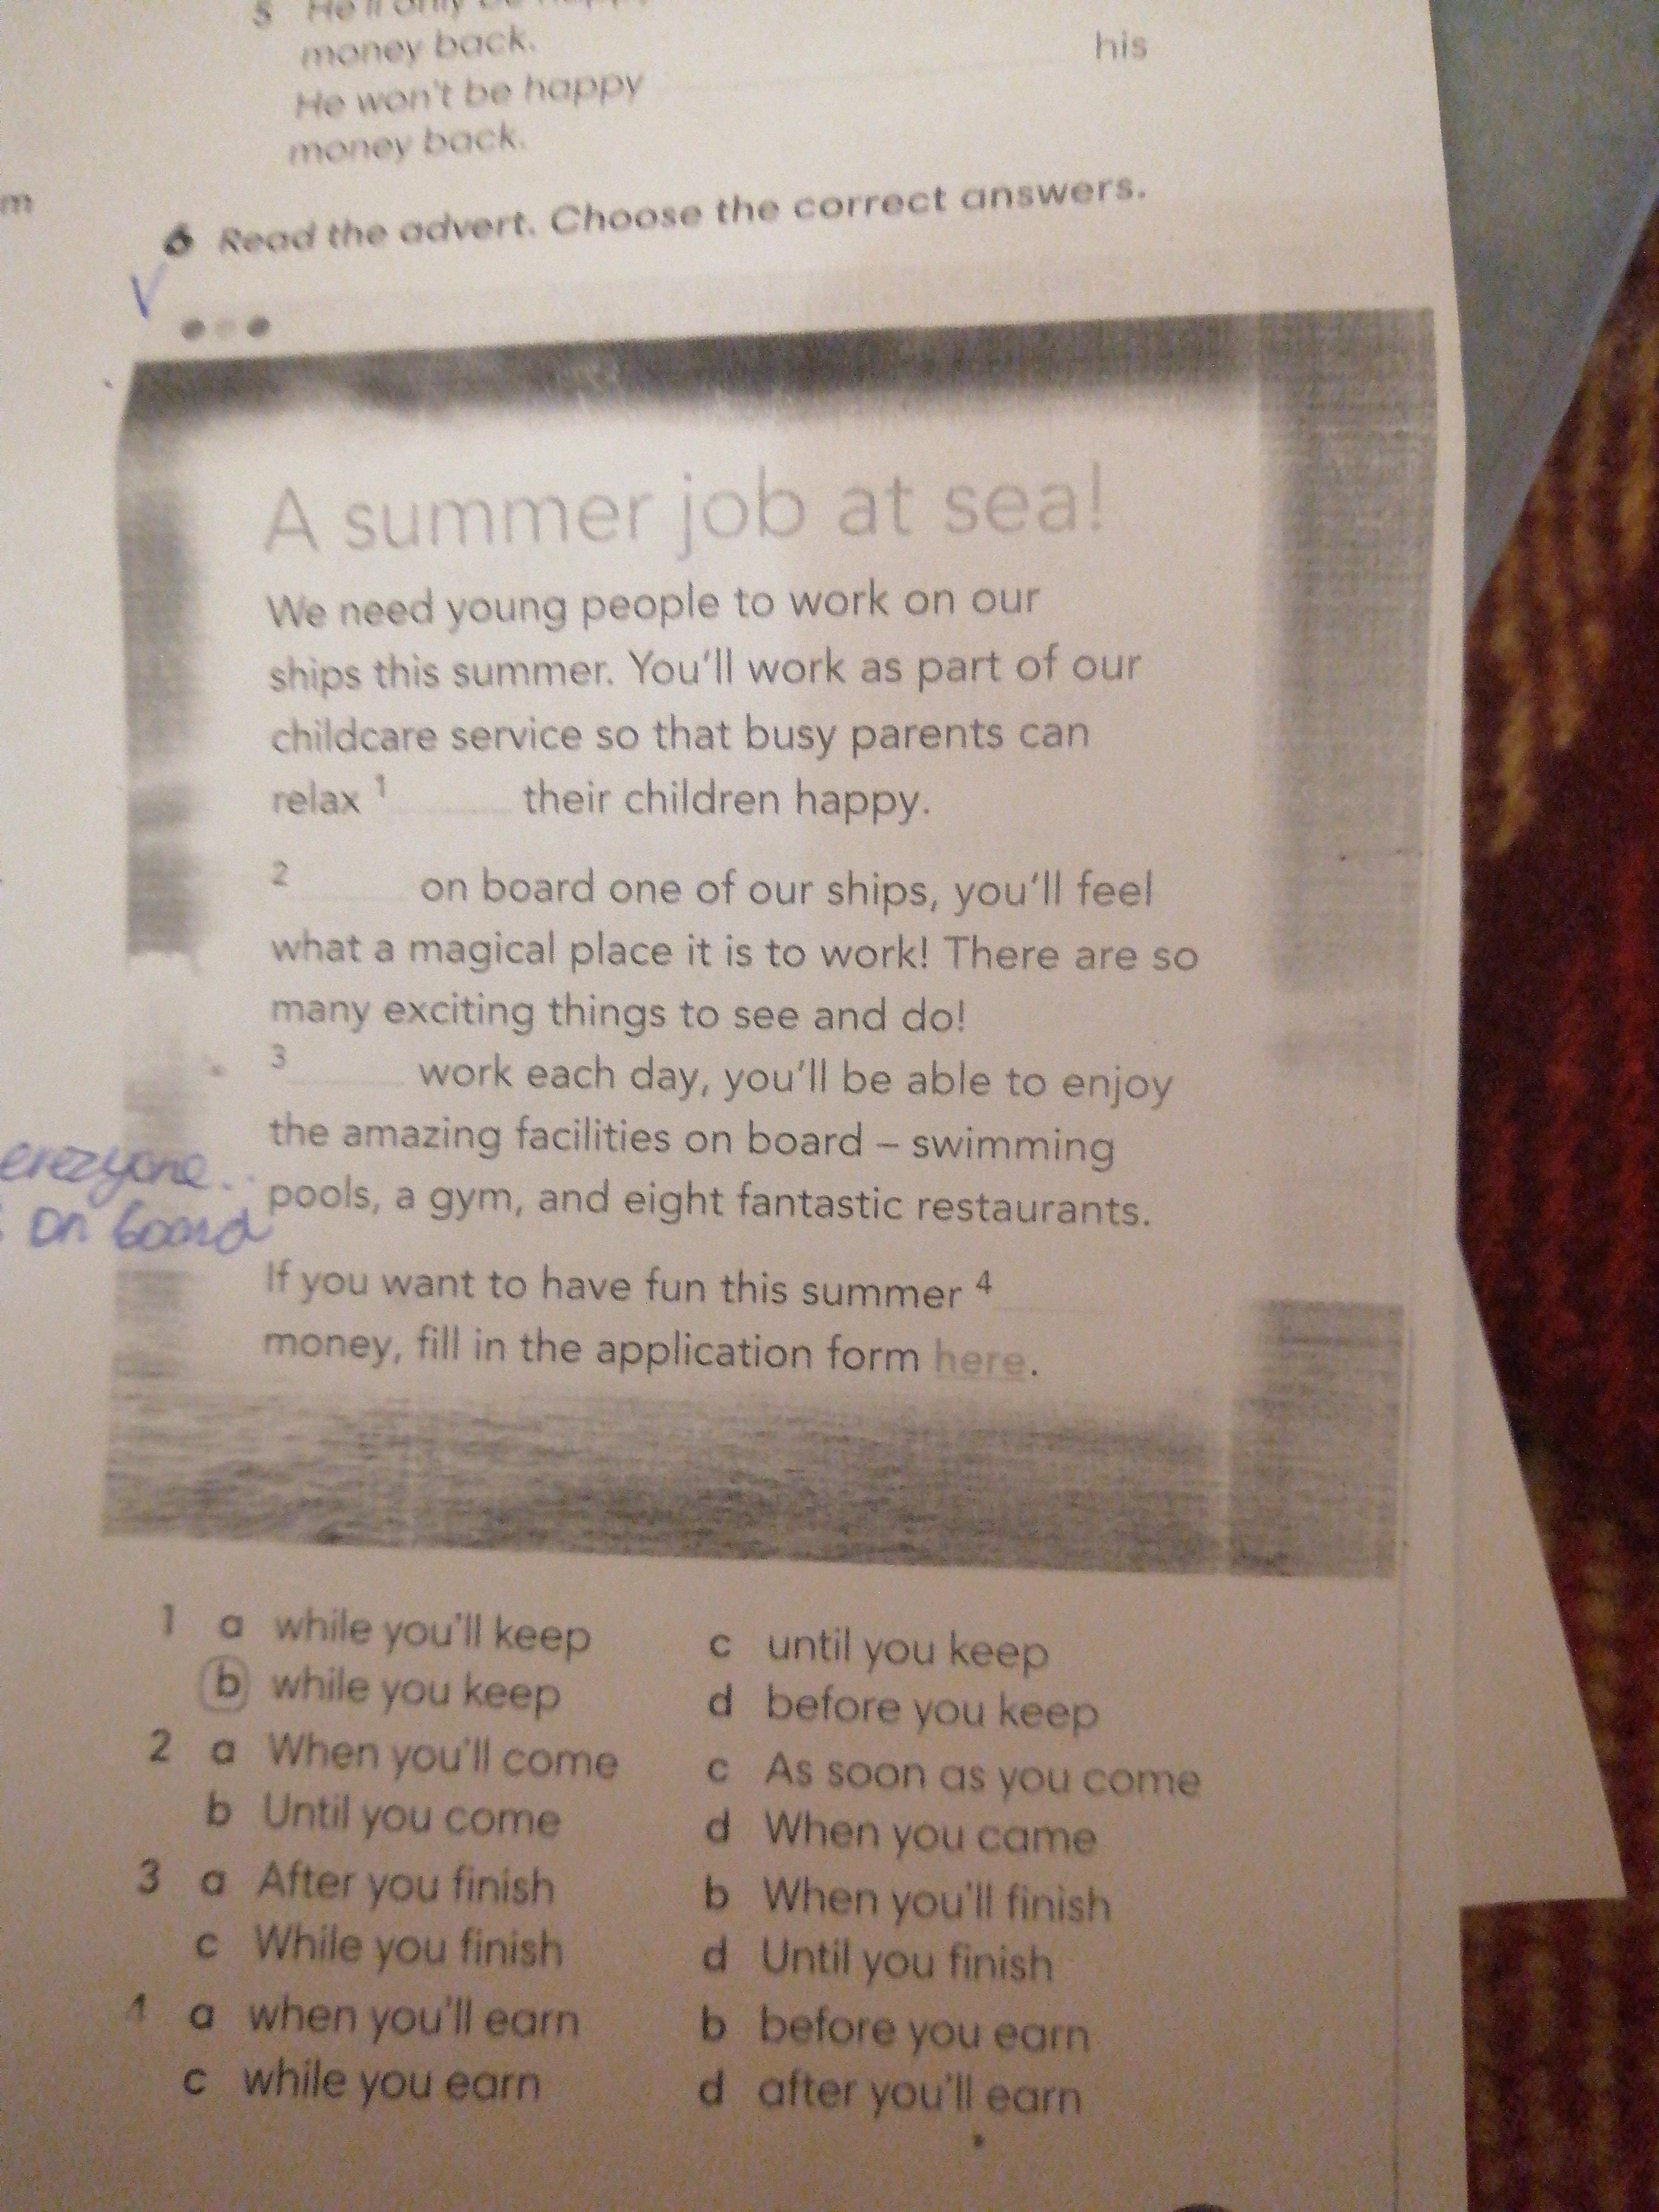 5 He'll only be happy
money back.
He won't be happy his
money back.
m
6 Read the advert. Choose the correct answers.
A summer job at sea!
We need young people to work on our
ships this summer. You'll work as part of our
childcare service so that busy parents can
relax 1 their children happy.
2 on board one of our ships, you'll feel
what a magical place it is to work! There are so
many exciting things to see and do!
3 work each day, you'll be able to enjoy
the amazing facilities on board – swimming
pools, a gym, and eight fantastic restaurants.
on board
If you want to have fun this summer 4
money, fill in the application form here.
1 a while you'll keep c until you keep
b while you keep d before you keep
2 a When you'll come c As soon as you come
b Until you come d When you came
3 a After you finish b When you'll finish
c While you finish d Until you finish
4 a when you'll earn b before you earn
c while you earn d after you'll earn